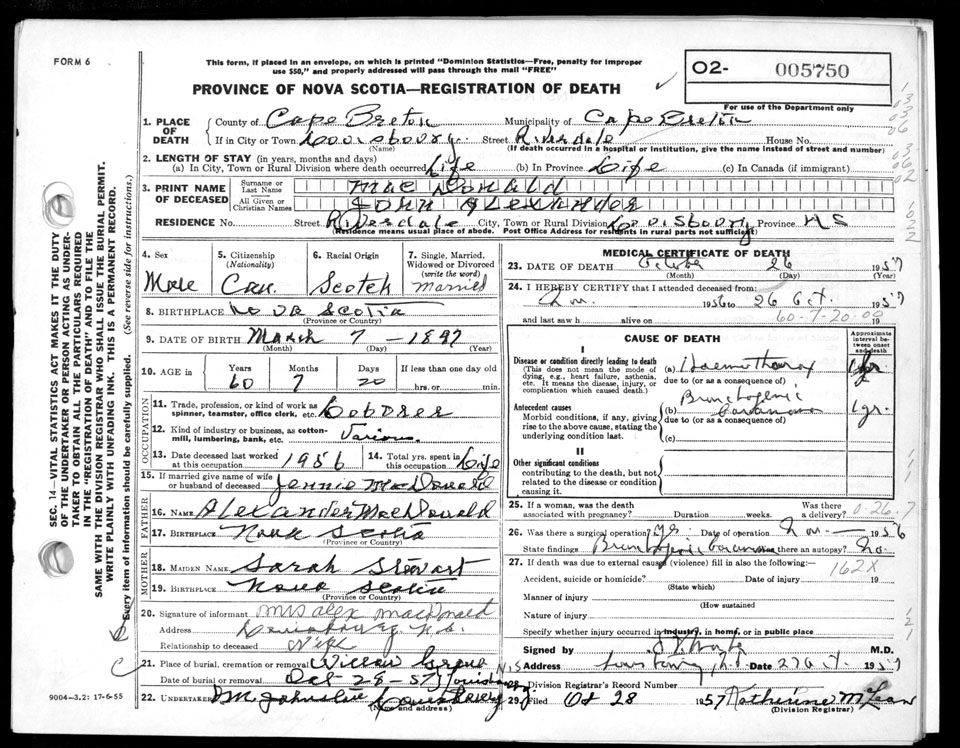 FORM 6
This form, if placed in an envelope, on which is printed "Dominion Statistics—Free, penalty for improper
use $50," and properly addressed will pass through the mail "FREE"
PROVINCE OF NOVA SCOTIA—REGISTRATION OF DEATH
O2- 005750
For use of the Department only
SEC. 14—VITAL STATISTICS ACT MAKES IT THE DUTY
OF THE UNDERTAKER OR PERSON ACTING AS UNDER-
TAKER TO OBTAIN ALL THE PARTICULARS REQUIRED
IN THE "REGISTRATION OF DEATH" AND TO FILE THE
SAME WITH THE DIVISION REGISTRAR WHO SHALL ISSUE THE BURIAL PERMIT.
WRITE PLAINLY WITH UNFADING INK. THIS IS A PERMANENT RECORD.
Every item of information should be carefully supplied. (See reverse side for instructions.)
1. PLACE OF DEATH County of Cape Breton Municipality of Cape Breton
If in City or Town Louisbourg Street Riverdale House No.
(Name) (If death occurred in a hospital or institution, give the name instead of street and number)
2. LENGTH OF STAY (in years, months and days)
(a) In City, Town or Rural Division where death occurred Life (b) In Province Life (c) In Canada (if immigrant)
3. PRINT NAME OF DECEASED Surname or Last Name Mac Donald
All Given or Christian Names John Alexander
RESIDENCE No. Street Riverdale City, Town or Rural Division Louisbourg Province N S
(Residence means usual place of abode. Post Office Address for residents in rural parts not sufficient)
4. Sex Male
5. Citizenship (Nationality) Can.
6. Racial Origin Scotch
7. Single, Married, Widowed or Divorced (write the word) Married
8. BIRTHPLACE Nova Scotia
(Province or Country)
9. DATE OF BIRTH March 7 - 1897
(Month) (Day) (Year)
10. AGE in Years 60 Months 7 Days 20 If less than one day old hrs. or min.
OCCUPATION
11. Trade, profession, or kind of work as spinner, teamster, office clerk, etc. Labourer
12. Kind of industry or business, as cotton-mill, lumbering, bank, etc. Various
13. Date deceased last worked at this occupation 1956
14. Total yrs. spent in this occupation Life
15. If married give name of wife or husband of deceased Jennie MacDonald
FATHER
16. NAME Alexander MacDonald
17. BIRTHPLACE Nova Scotia
(Province or Country)
MOTHER
18. MAIDEN NAME Sarah Stewart
19. BIRTHPLACE Nova Scotia
(Province or Country)
20. Signature of informant Mrs Alex MacDonald
Address Louisbourg N.S.
Relationship to deceased Wife
21. Place of burial, cremation or removal Willow Grove
Date of burial or removal Oct-28-57 Louisbourg N.S
22. UNDERTAKER Louisbourg
(Name and address)
9004—3.2: 17-6-55
MEDICAL CERTIFICATE OF DEATH
23. DATE OF DEATH October 26 1957
(Month) (Day) (Year)
24. I HEREBY CERTIFY that I attended deceased from:
1956 to 26 Oct. 1957
and last saw h alive on 19
60-7-20-00
CAUSE OF DEATH
Approximate interval between onset and death
I
Disease or condition directly leading to death
(This does not mean the mode of dying, e.g., heart failure, asthenia, etc. It means the disease, injury, or complication which caused death.)
(a) Haemothorax
due to (or as a consequence of)
Antecedent causes
Morbid conditions, if any, giving rise to the above cause, stating the underlying condition last.
(b) Bronchogenic Carcinoma 1 yr.
due to (or as a consequence of)
(c)
II
Other significant conditions
contributing to the death, but not related to the disease or condition causing it.
25. If a woman, was the death associated with pregnancy? Duration weeks. Was there a delivery?
0-26-7
26. Was there a surgical operation? yes Date of operation 1956
State findings Bronchogenic Carcinoma Was there an autopsy? No.
27. If death was due to external causes (violence) fill in also the following:—
162X
Accident, suicide or homicide? Date of injury 19
(State which)
Manner of injury
(How sustained)
Nature of injury
Specify whether injury occurred in industry, in home, or in public place
Signed by M.D.
Address Louisbourg, N.S. Date 27 Oct. 1957
28. Division Registrar's Record Number
29. Filed Oct 28 1957 Katherine McLean
(Division Registrar)